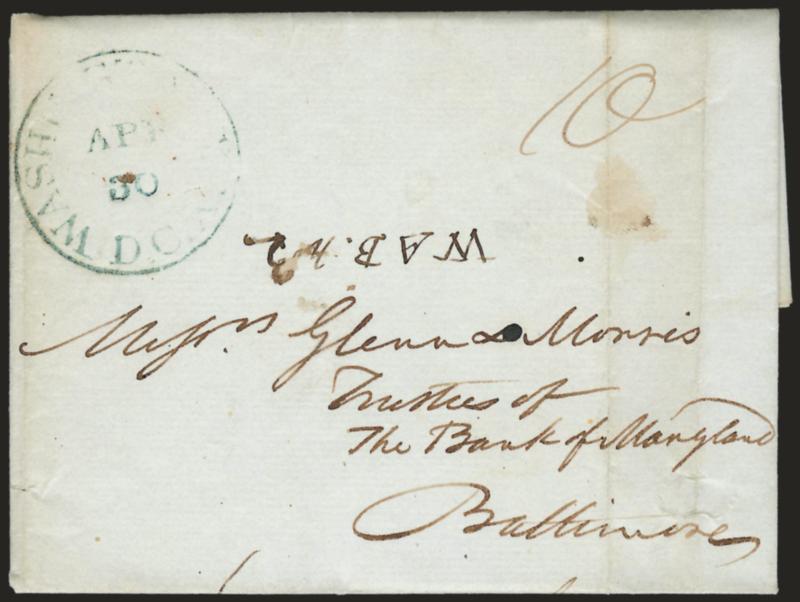 10
WASH
APR
30
D.C.
Messrs. Glenn & Morris
Trustees of
The Bank of Maryland
Baltimore